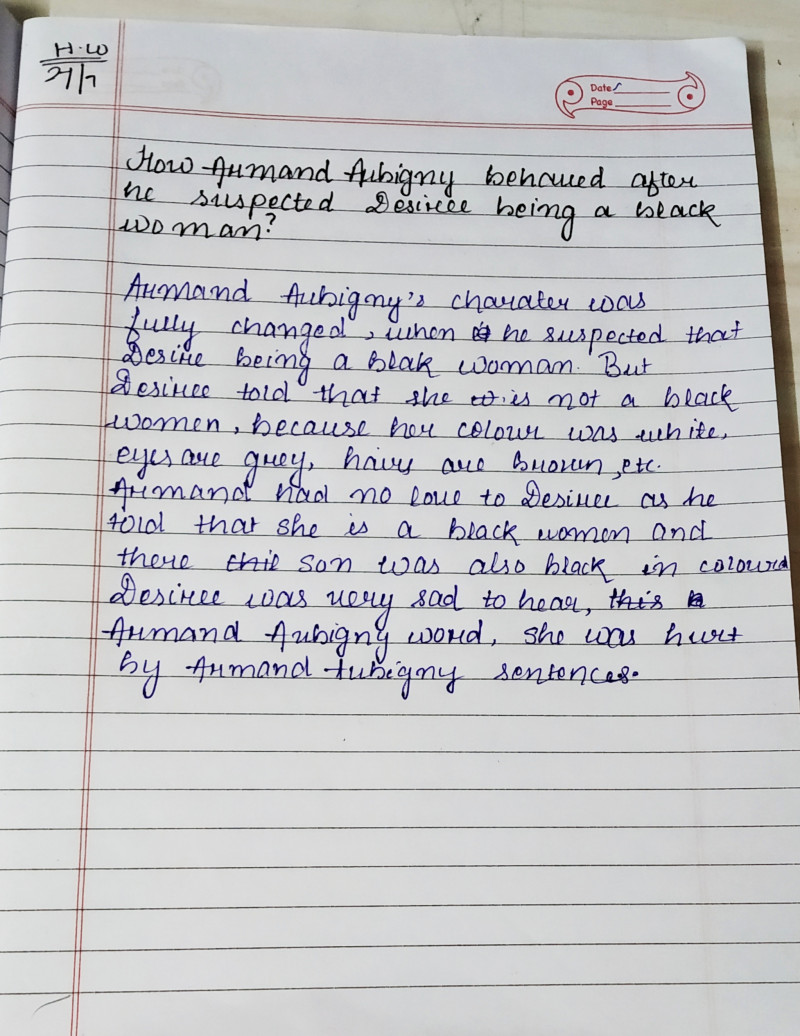 H.W
21/7
Date
Page
How Armand Aubigny behaved after
he suspected Desiree being a black
woman?
Armand Aubigny's charater was
fully changed, when he suspected that
Desire being a blak woman. But
Desiree told that she is not a black
women, because her colour was white,
eyes are grey, hairs are brown, etc.
Armand had no love to Desiree as he
told that she is a black women and
there son was also black in coloured
Desiree was very sad to hear, this
Armand Aubigny word, she was hurt
by Armand Aubigny sentences.